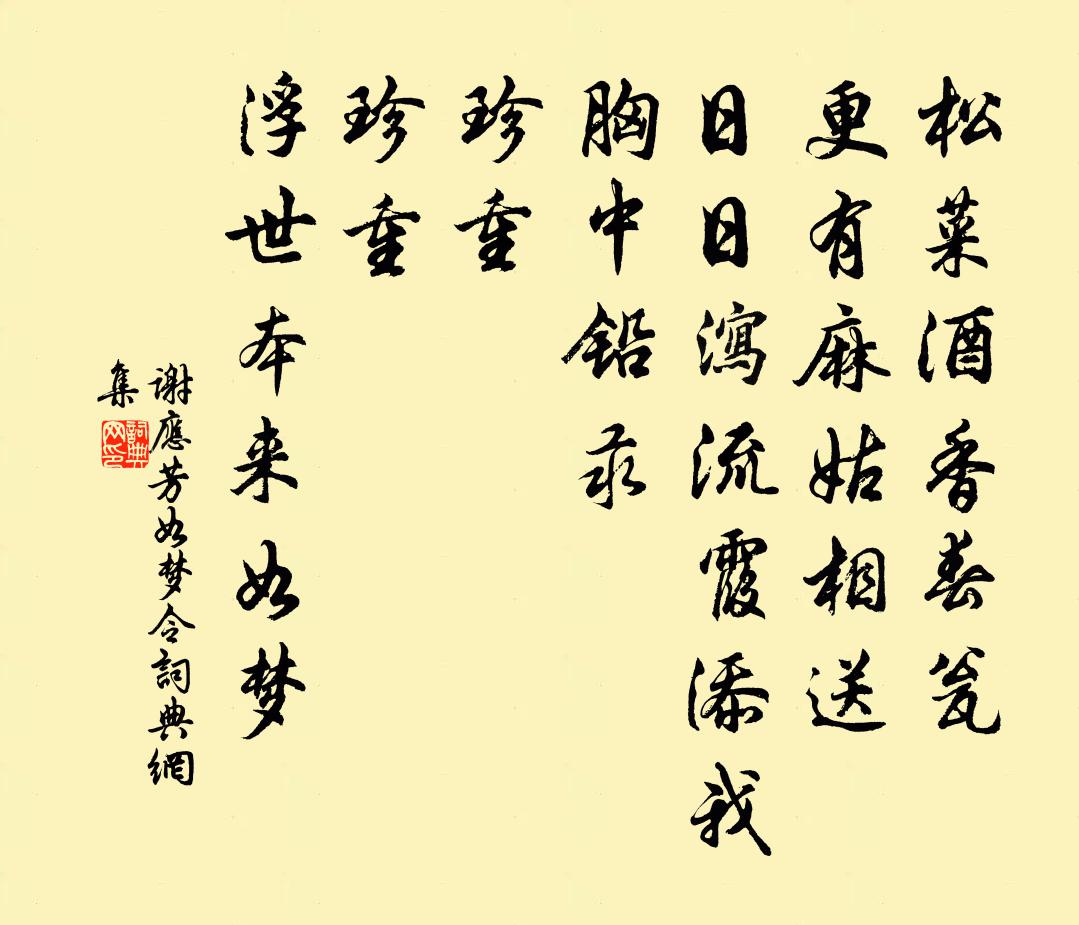 松菜酒香春瓮
更有麻姑相送
日日瀉流霞添我
胸中鉛汞
珍重
珍重
浮世本来如梦
谢應芳如梦令詞典網
集
詞典网印